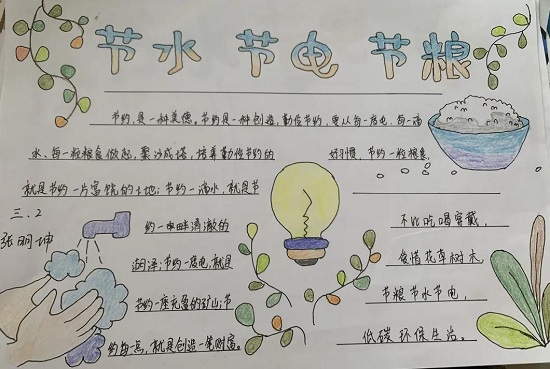 节水 节电 节粮
节约,是一种美德。节约是一种创造,勤俭节约,要从每一度电、每一滴
水、每一粒粮食做起,聚沙成塔,培养勤俭节约的 好习惯,节约一粒粮食,
就是节约一片富饶的土地;节约一滴水,就是节
约一亩畔清澈的
润泽;节约一度电,就是
节约一座充盈的矿山;节
约每一点,就是创造一笔财富。
三.2
张明坤
不比吃喝穿戴,
爱惜花草树木,
节粮节水节电,
低碳环保生活。